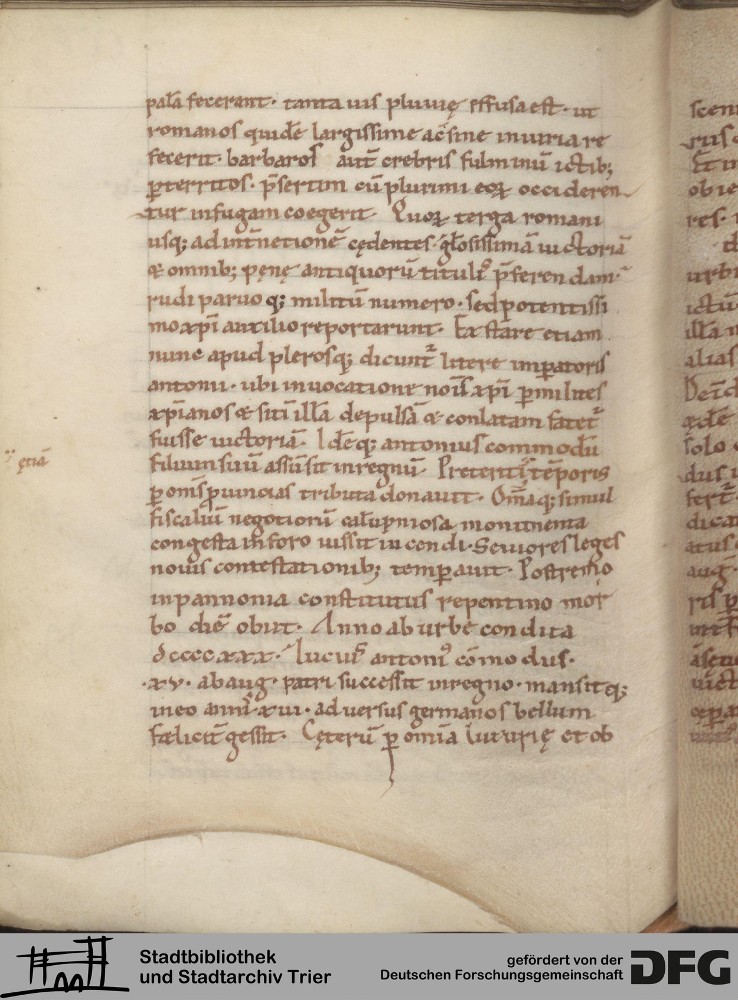 palā fecerant· tanta uis pluuię effusa est· ut
romanos quidē largissime ac sine iniuria re
fecerit· barbaros aut̄ crebris fulminū ictib;
ꝑterritos· p̄sertim cū plurimi eoꝝ occideren
tur in fugam coegerit· Quoꝝ terga romani
usq; ad int̄netionē cędentes· gl̄osissimā uictoriā
& omnib; pęnę antiquorū titulis p̄ferendam·
rudi paruo q; militū numero· sed potentissi
mo xp̄i auxilio reportarunt· Exstare etiam
nunc apud plerosq; dicunt᷑ litere imꝑatoris
antonii· ubi inuocatione nois̄ xp̄i ꝑ milites
xp̄ianos & sitī illā depulsā & conlatam fatet᷑
fuisse uictoriā· Idēq; antonius commodū
filium suū assūsit in regnū· Preteriti tēporis
ꝑ om̄s ꝓuincias tributa donauit· Om̄iaq; simul
fiscaliū negotiorū calūpniosa monimenta
congesta in foro iussit incendi· Seuiores leges
nouis contestationib; temꝑauit· Postremo
in pannonia constitutus repentino mor
bo diē obiit· Anno ab urbe condita
dcccc·xxx· Lucius antoni᷒ cōmodus·
·xv· ab aug· patri successit in regno· mansitq;
in eo annis xiii· aduersus germanos bellum
fęlicit̄ gessit· Cęterū ꝑ omīa luxurię et ob
ętiā
Stadtbibliothek
und Stadtarchiv Trier
gefördert von der
Deutschen Forschungsgemeinschaft
DFG